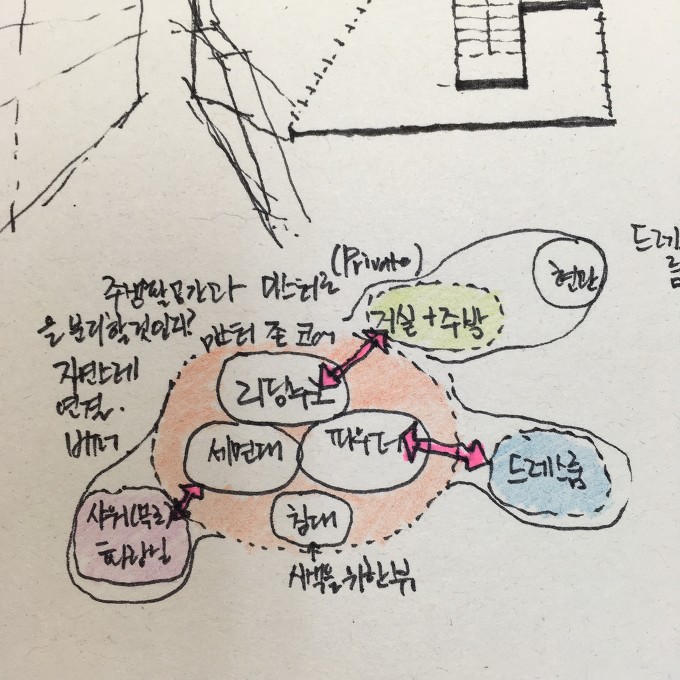 드레
룸
(Private)
현관
주방 및 공간과 마스터로
을 분리할것인지?
마스터 존 코어
거실+주방
자연스레
연결.
버퍼
리딩누크
세면대
파우더
드레스룸
샤워(부스)
화장실
침대
새벽을 위한 뷰